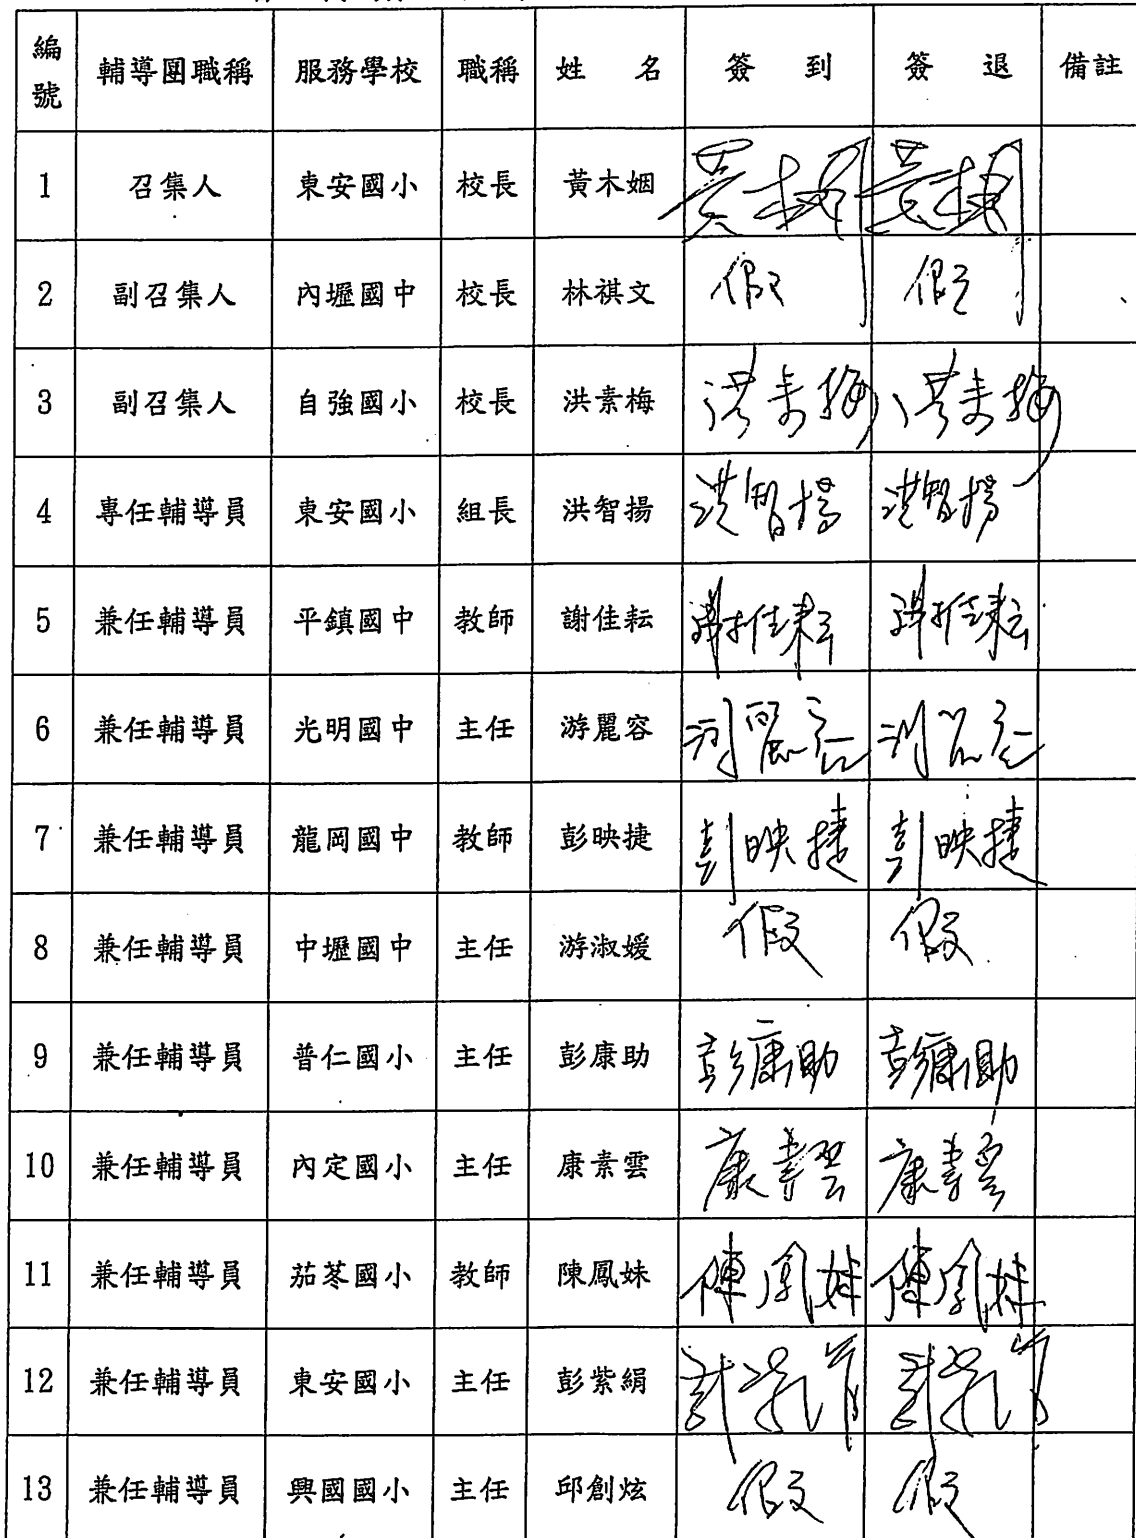 編號 輔導團職稱 服務學校 職稱 姓名 簽到 簽退 備註
1 召集人 東安國小 校長 黃木姻
2 副召集人 內壢國中 校長 林祺文 假 假
3 副召集人 自強國小 校長 洪素梅 洪素梅 洪素梅
4 專任輔導員 東安國小 組長 洪智揚 洪智揚 洪智揚
5 兼任輔導員 平鎮國中 教師 謝佳耘 謝佳耘 謝佳耘
6 兼任輔導員 光明國中 主任 游麗容 游麗容 游麗容
7 兼任輔導員 龍岡國中 教師 彭映捷 彭映捷 彭映捷
8 兼任輔導員 中壢國中 主任 游淑媛 假 假
9 兼任輔導員 普仁國小 主任 彭康助 彭康助 彭康助
10 兼任輔導員 內定國小 主任 康素雲 康素雲 康素雲
11 兼任輔導員 茄苳國小 教師 陳鳳妹 陳鳳妹 陳鳳妹
12 兼任輔導員 東安國小 主任 彭紫絹
13 兼任輔導員 興國國小 主任 邱創炫 假 假